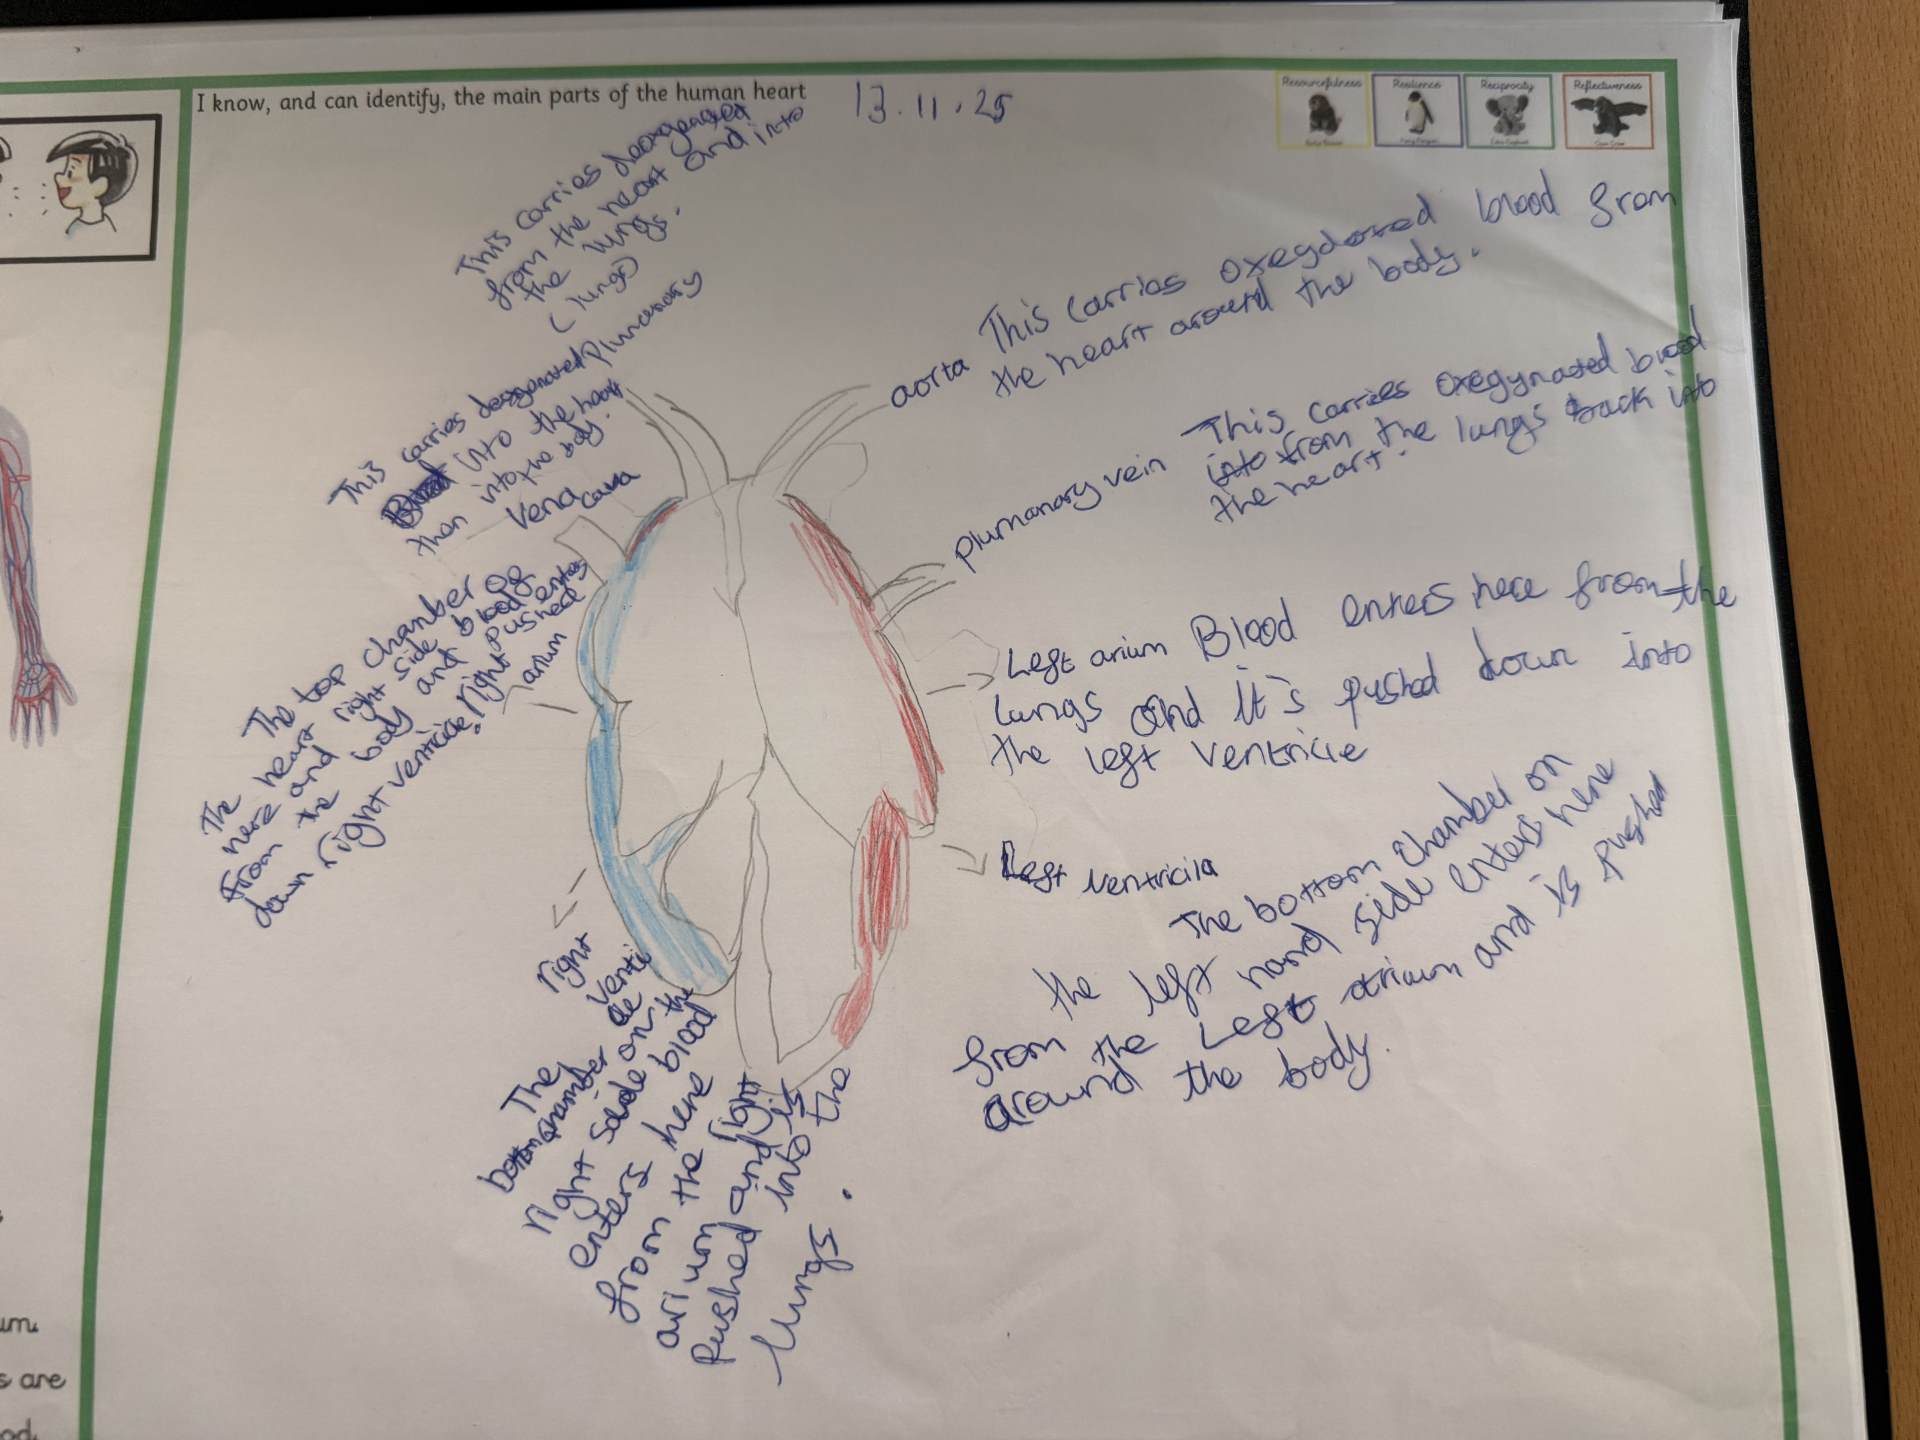 I know, and can identify, the main parts of the human heart
13.11.25
Resourcefulness
Resilience
Reciprocity
Reflectiveness
This carries
from the heart and into
the lungs.
(lungs)
Plumanary
This carries
into the heart
then into the body.
Vena cava
aorta This carries blood from
the heart around the body.
Plumanary vein This carries oxegynated blood
from the lungs back into
the heart.
The top chamber of
the heart right side blood enters
here and and pushed
from the body and right
down right ventricle. arium
Left arium Blood enters here from the
lungs and it's pushed down into
the left ventricle
Left ventricila
The bottom chamber on
the left hand side enters here
from the Left atrium and is pushed
around the body.
right
ventri
cle
The
bottom chamber on the
right saide blood
enters here
from the right
arium and it's
pushed into the
lungs.
um.
s are
od.